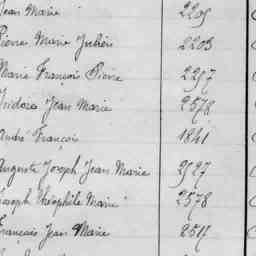 Jean Marie 2205
Pierre Marie Julien 2203
Marie François Pierre 2257
Isidore Jean Marie 2578
André François 1841
Auguste Joseph Jean Marie 2527
Joseph Théophile Marie 2578
François Jean Marie